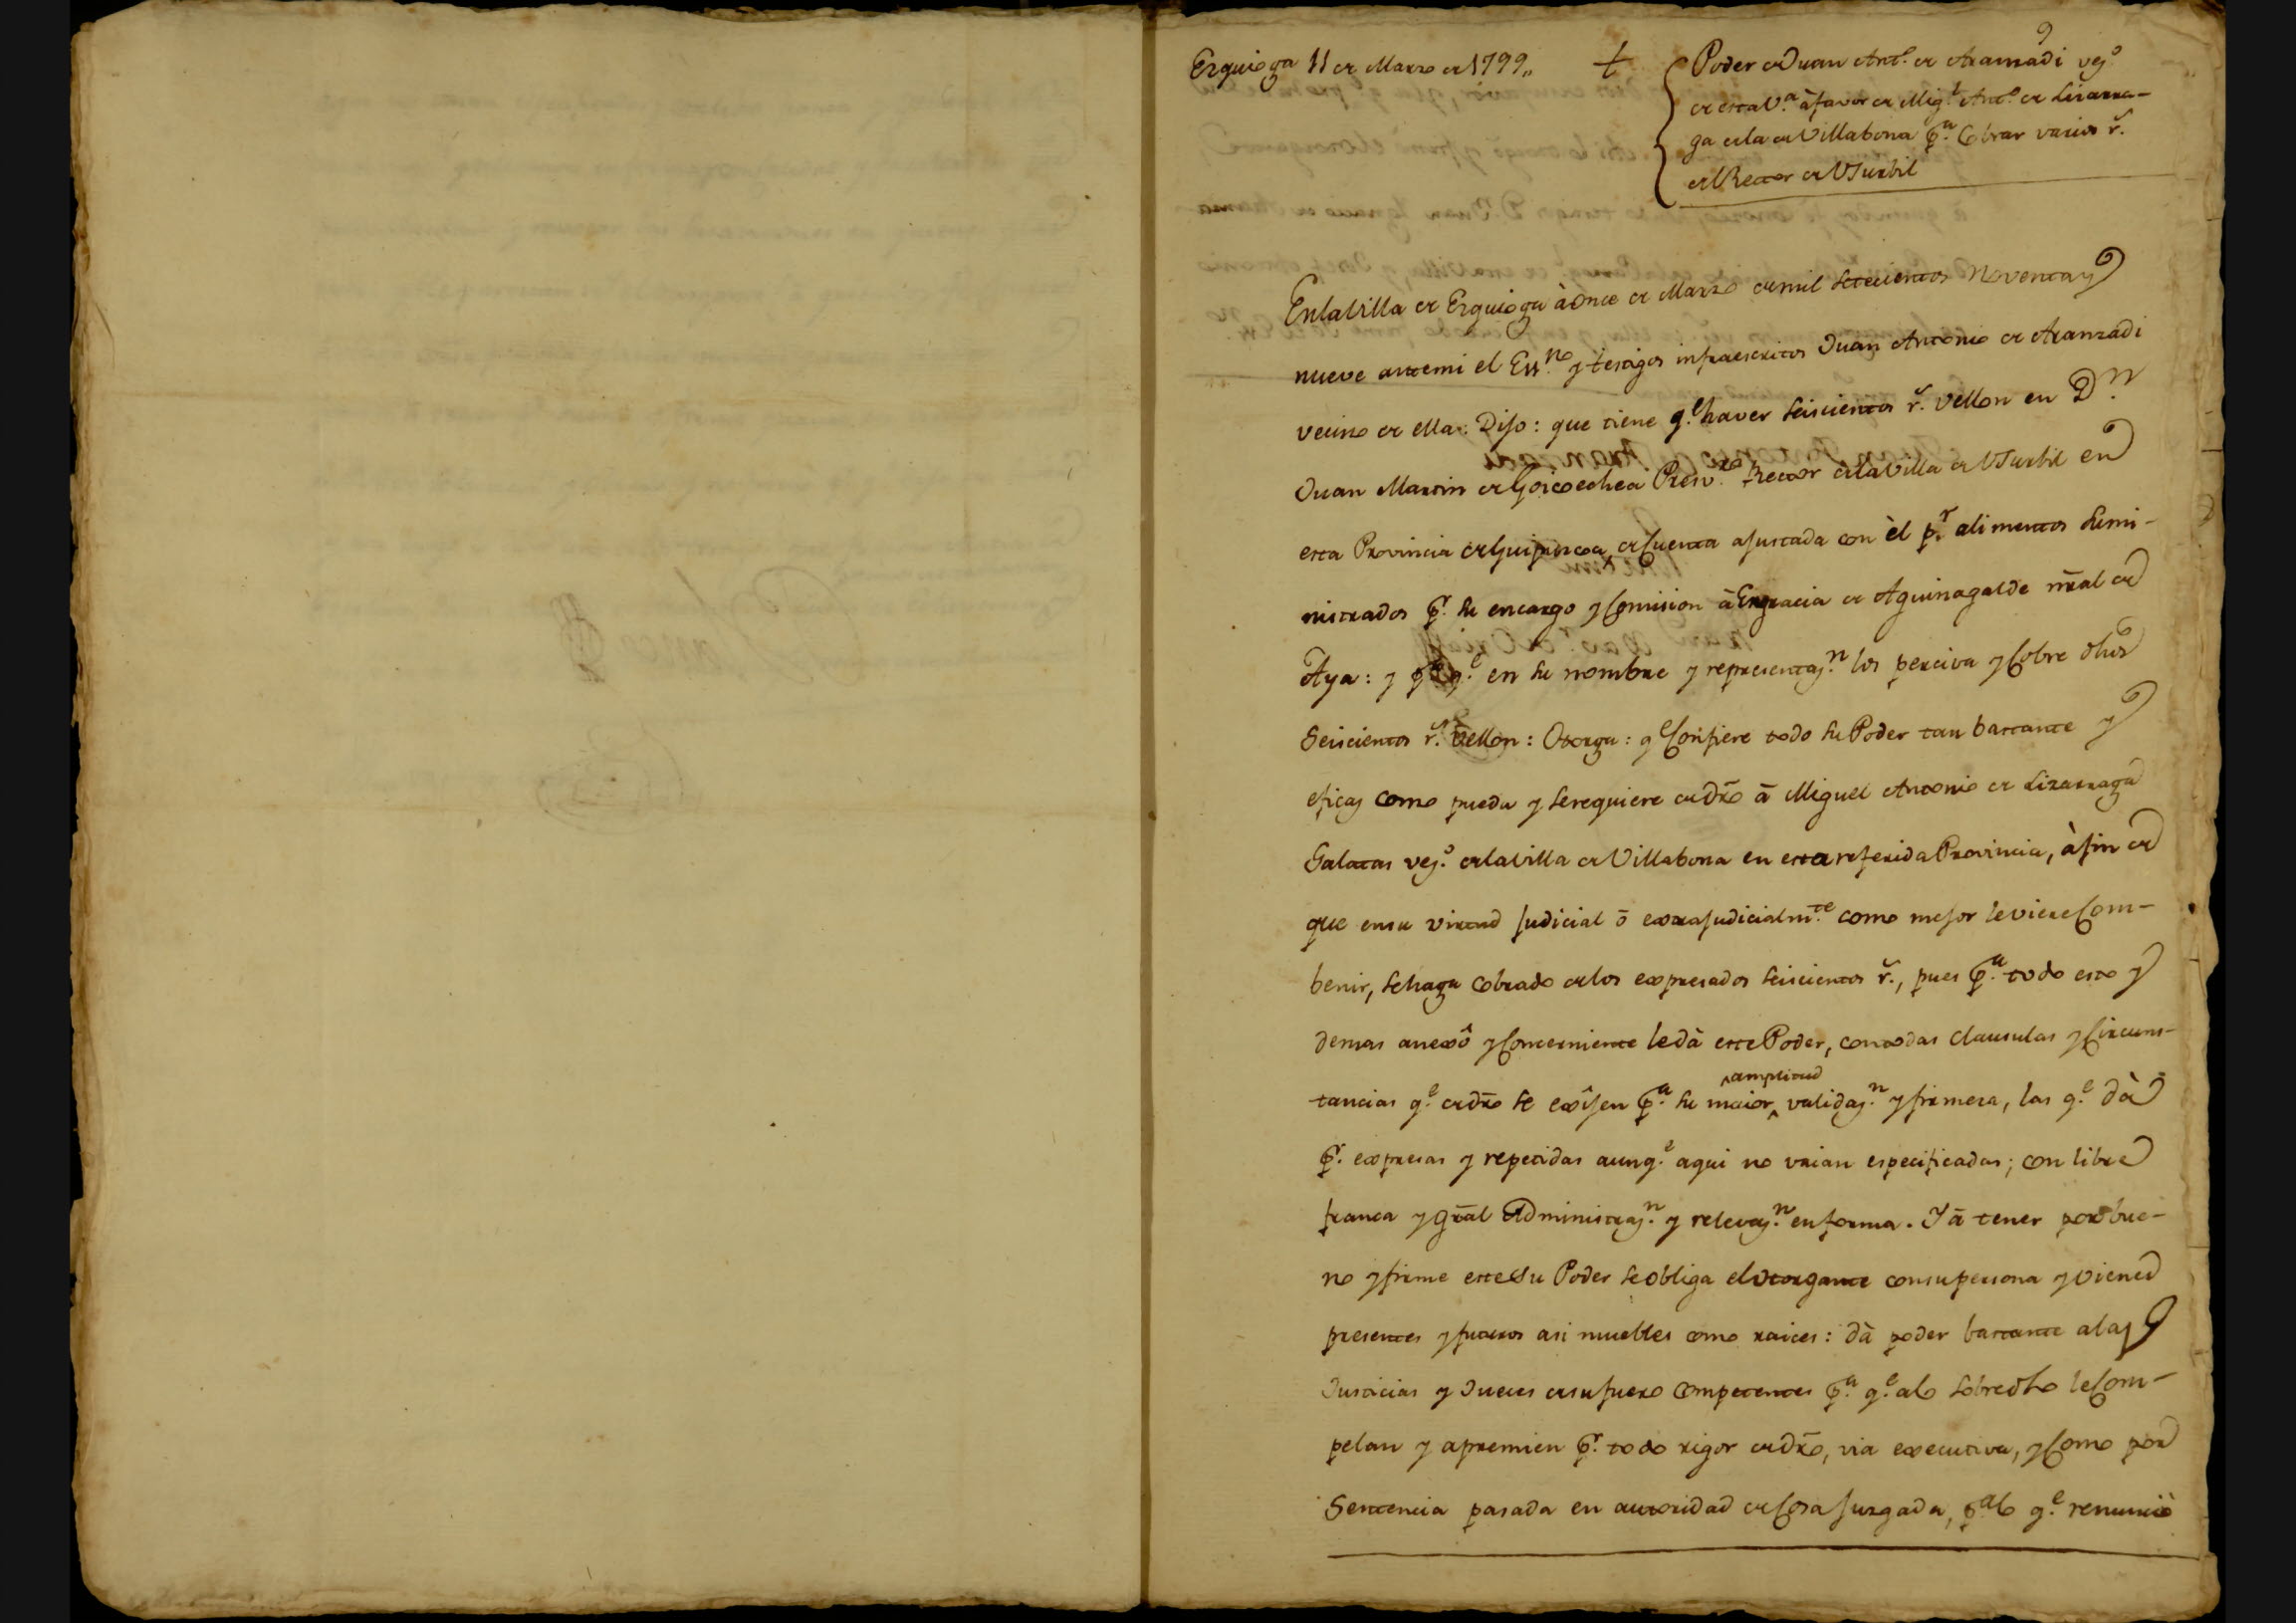 9
Ezquioga 11 de Marzo de 1799,, +
Poder de Juan Antº. de Aranzadi vezº
de esta Vª. à favor de Migl. Antº. de Lizarra-
ga de la de Villabona pª. Cobrar varios rˢ.
del Rector de Usurbil
En la Villa de Ezquioga à Once de Marzo de mil Setecientos Noventa y
nueve ante mi el Essⁿº. y testigos infraescritos Juan Antonio de Aranzadi
vecino de ella: Dijo: que tiene qᵉ haver Seiscientos rˢ. vellon en Dⁿ.
Juan Martin de Goicoechea Presvʳº. Rector de la Villa de Usurbil en
esta Provincia de Guipuzcoa, de Cuenta ajustada con èl pʳ. alimentos Sumi-
nistrados pʳ. su encargo y Comision à Engracia de Aguinagalde nr̃al de
Aya: y pª. qᵉ. en su nombre y representazⁿ. los perciva y Cobre dhos
Seiscientos rˢ. vellon: Otorga: q Confiere todo su Poder tan bastante y
eficaz como pueda y se requiere de dr̃o à Miguel Antonio de Lizarraga
Galatas vezº. de la Villa de Villabona en esta referida Provincia, à fin de
que en su virtud judicial ò extrajudicialmᵗᵉ. como mejor le viere Com-
benir, se haga cobrado de los expresados Seiscientos rˢ., pues pª. todo esto y
demas anexô y Concerniente le dà este Poder, con todas Clausulas y Circuns-
tancias qᵉ. de dr̃o se exîjen pª. su maior ^amplitud validazⁿ. y firmeza, las qᵉ. dà
pʳ. expresas y repetidas aunqᵉ. aqui no vaian especificadas; con libre
franca y gr̃al Administrazⁿ. y relevazⁿ. en forma. Y à tener por bue-
no y firme este su Poder se obliga el otorgante con su persona y vienes
presentes y futuros asi muebles como raices: dà poder bastante a las
Justicias y Jueces de su fuero Competentes pª. qᵉ. a lo sobredho le Com-
pelan y apremien pʳ. todo rigor de dr̃o, via executiva, y Como por
Sentencia pasada en autoridad de Cosa Juzgada, pª lo qᵉ. renunciò